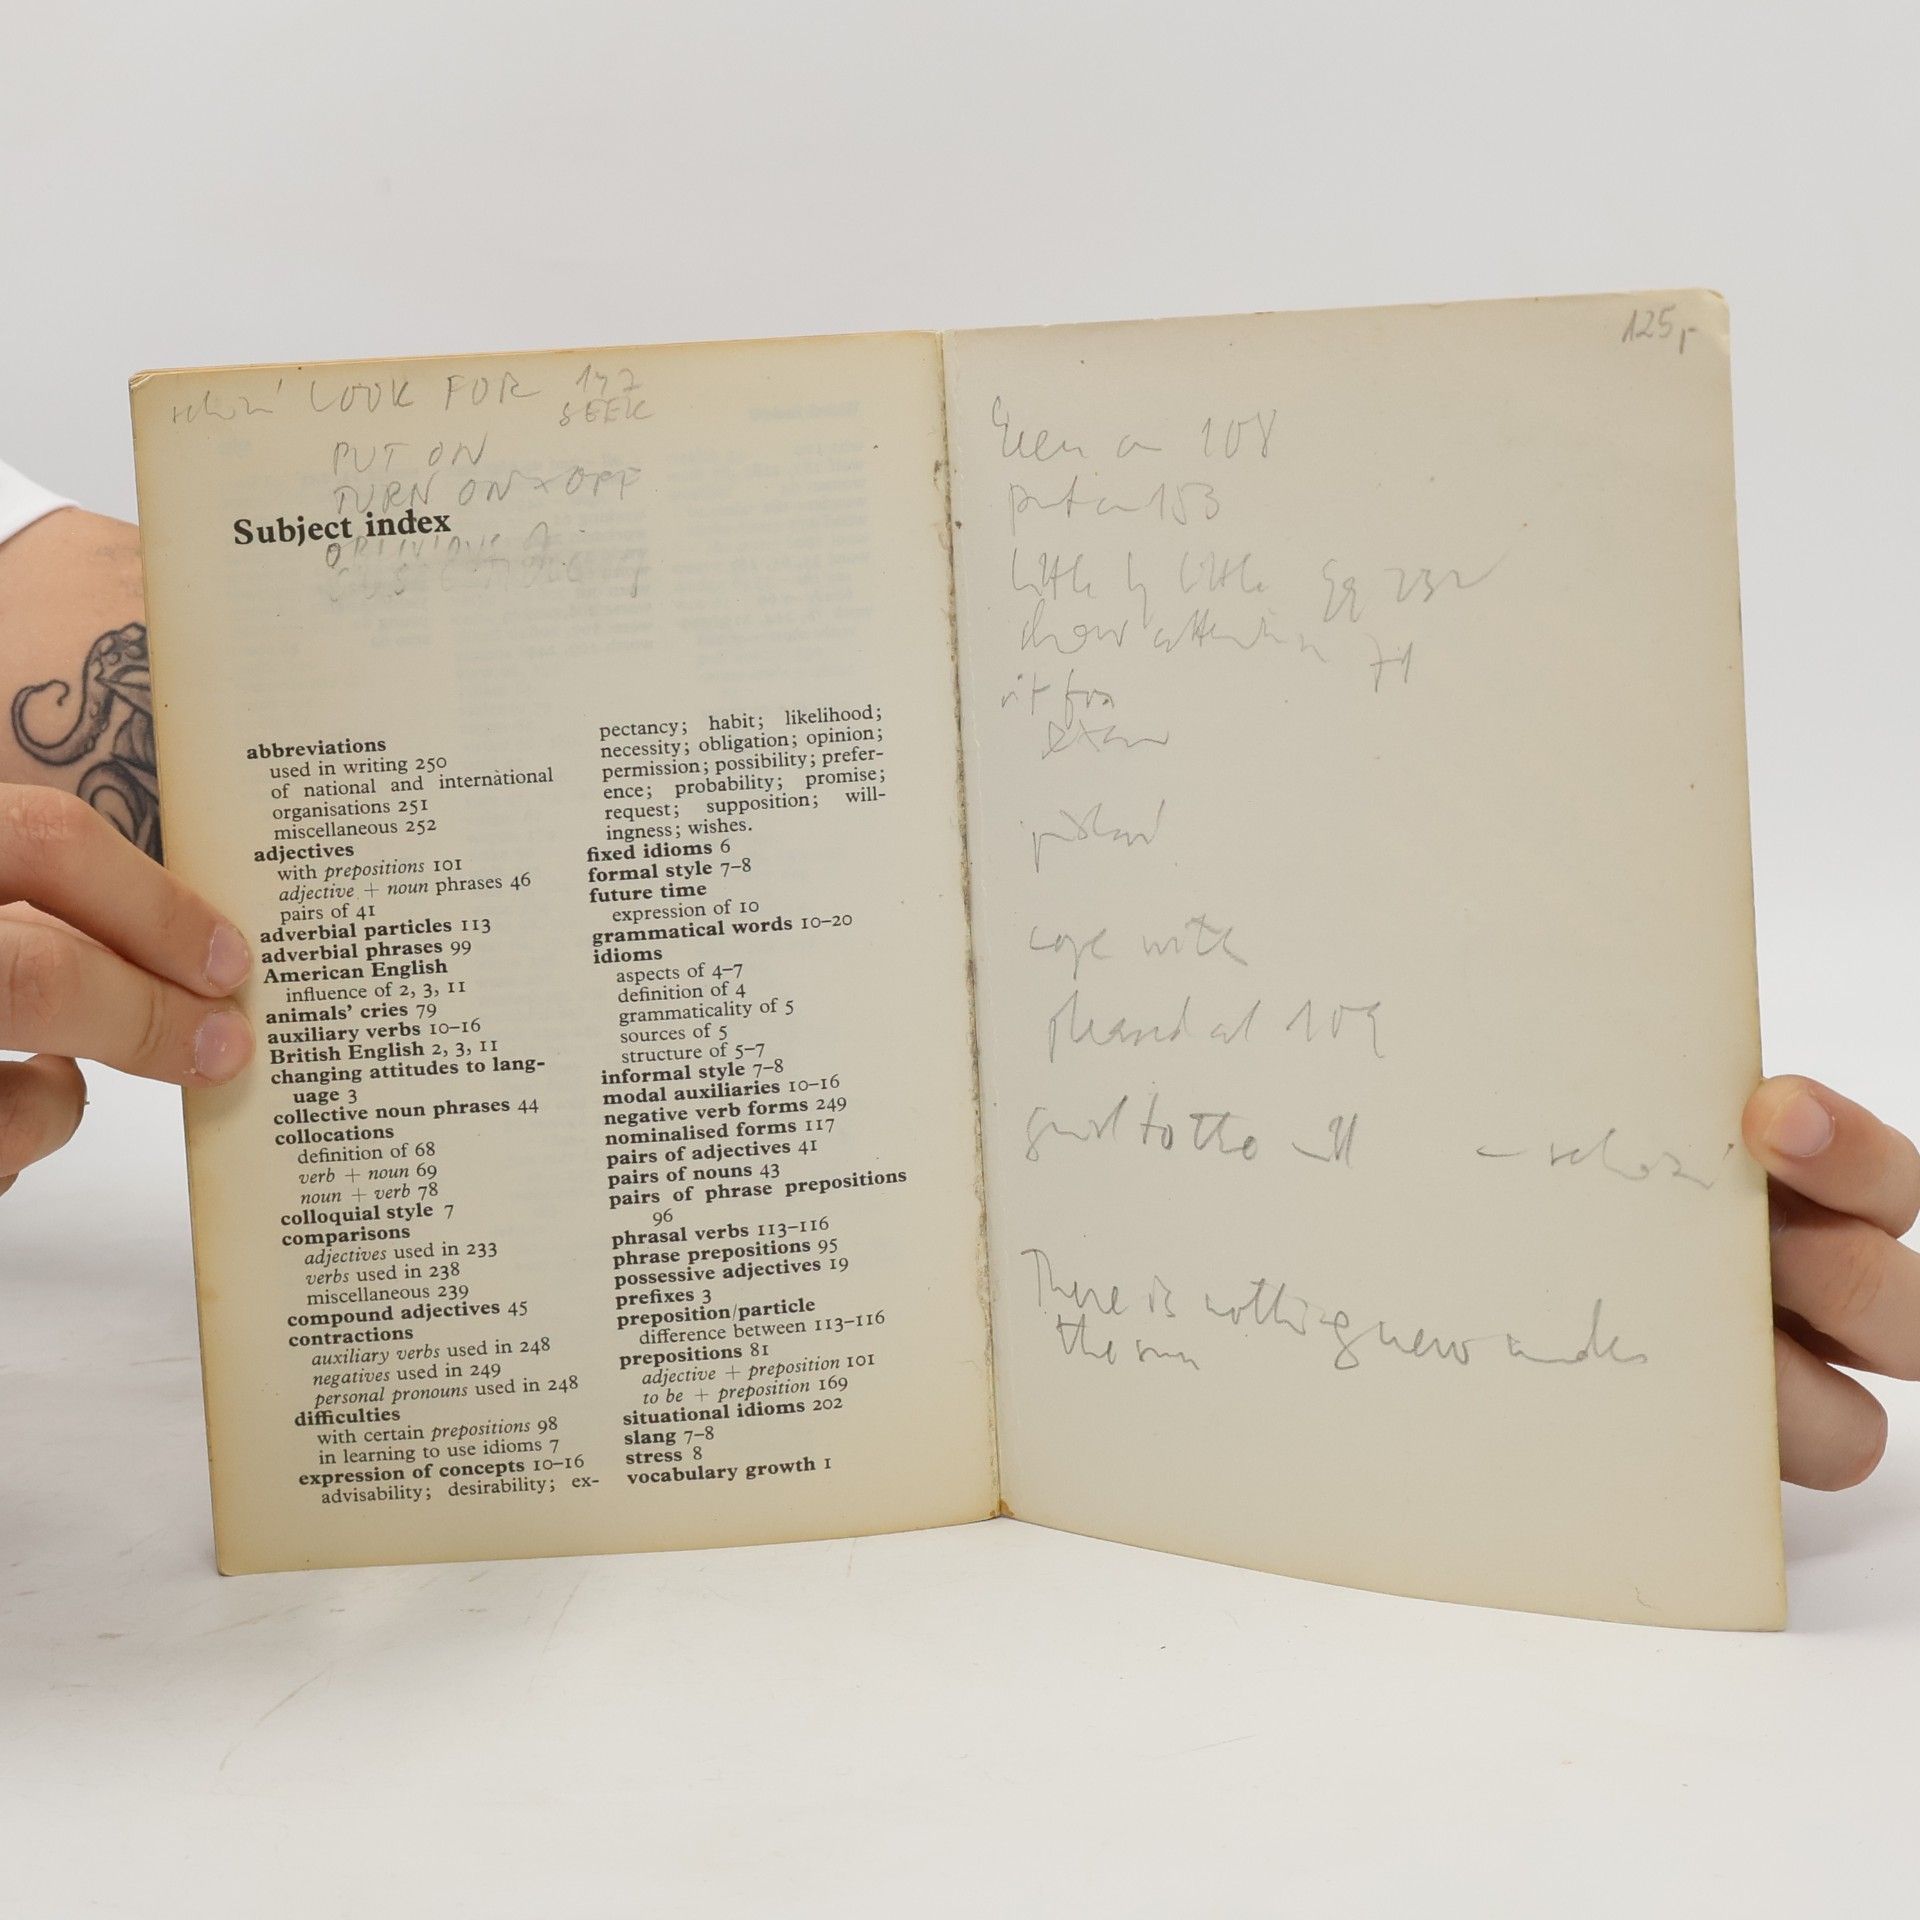 LOOK FOR 147
SEEK
PUT ON
TURN ON × OFF
Subject index
abbreviations
used in writing 250
of national and international
organisations 251
miscellaneous 252
adjectives
with prepositions 101
adjective + noun phrases 46
pairs of 41
adverbial particles 113
adverbial phrases 99
American English
influence of 2, 3, 11
animals' cries 79
auxiliary verbs 10–16
British English 2, 3, 11
changing attitudes to lang-
uage 3
collective noun phrases 44
collocations
definition of 68
verb + noun 69
noun + verb 78
colloquial style 7
comparisons
adjectives used in 233
verbs used in 238
miscellaneous 239
compound adjectives 45
contractions
auxiliary verbs used in 248
negatives used in 249
personal pronouns used in 248
difficulties
with certain prepositions 98
in learning to use idioms 7
expression of concepts 10–16
advisability; desirability; ex-
pectancy; habit; likelihood;
necessity; obligation; opinion;
permission; possibility; prefer-
ence; probability; promise;
request; supposition; will-
ingness; wishes.
fixed idioms 6
formal style 7–8
future time
expression of 10
grammatical words 10–20
idioms
aspects of 4–7
definition of 4
grammaticality of 5
sources of 5
structure of 5–7
informal style 7–8
modal auxiliaries 10–16
negative verb forms 249
nominalised forms 117
pairs of adjectives 41
pairs of nouns 43
pairs of phrase prepositions
96
phrasal verbs 113–116
phrase prepositions 95
possessive adjectives 19
prefixes 3
preposition/particle
difference between 113–116
prepositions 81
adjective + preposition 101
to be + preposition 169
situational idioms 202
slang 7–8
stress 8
vocabulary growth 1
125,-
keen on 108
put on 153
little by little 232
show attention 71
exam
cope with
pleased at 109
There is nothing new under
the sun